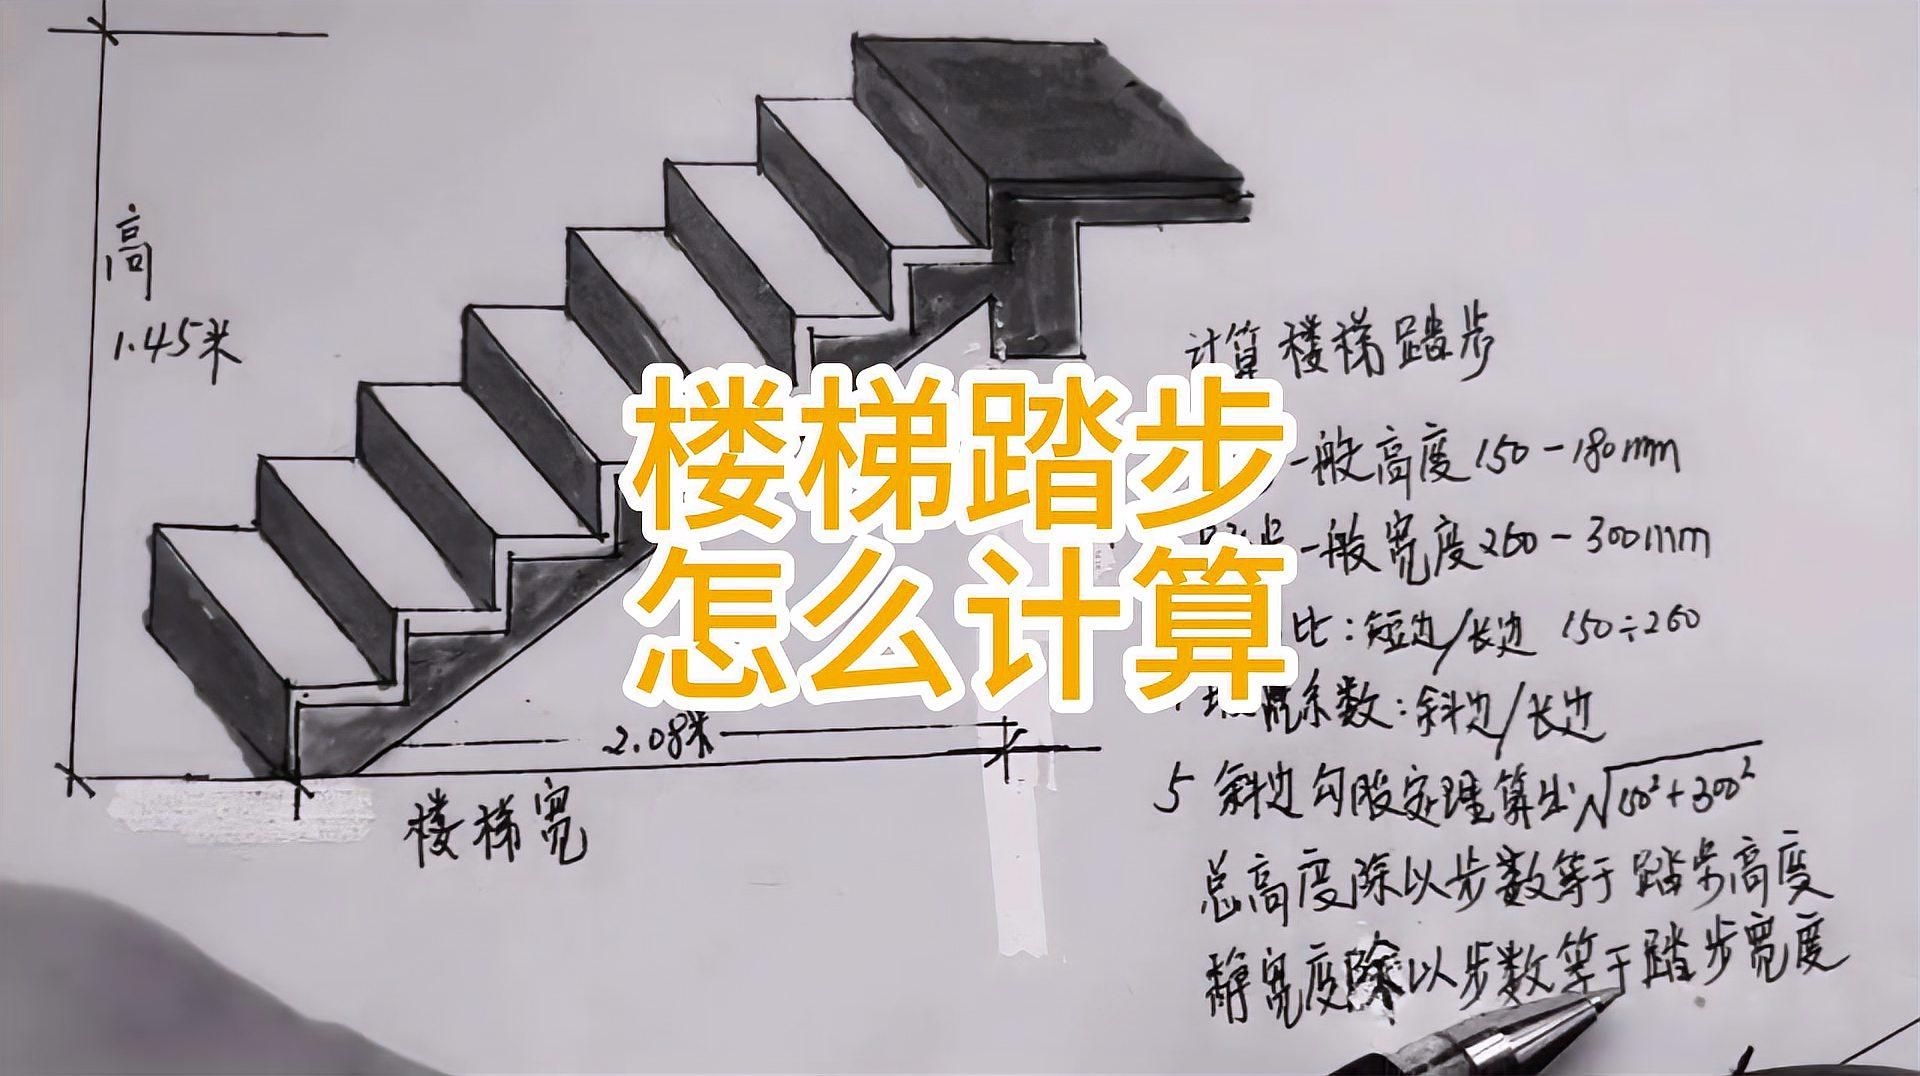 高
1.45米
2.08米
楼梯宽
楼梯踏步
怎么计算
计算楼梯踏步
一般高度150-180mm
一般宽度260-300mm
比:短边/长边 150÷260
系数:斜边/长边
5 斜边勾股定理算出√150²+300²
总高度除以步数等于踏步高度
宽度除以步数等于踏步宽度